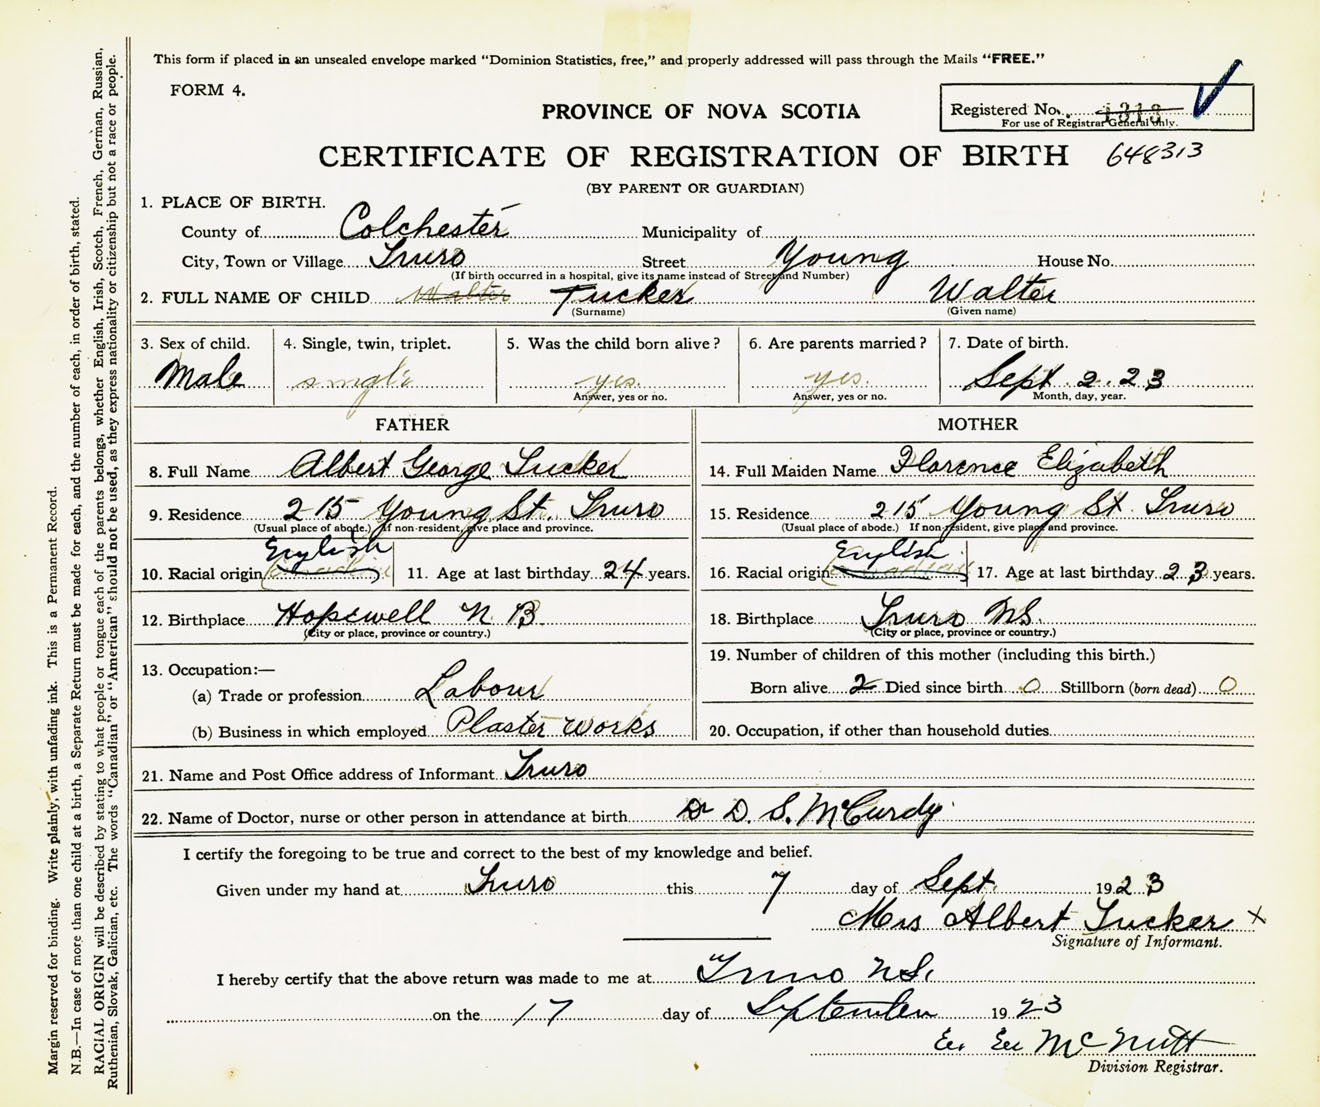 This form if placed in an unsealed envelope marked "Dominion Statistics, free," and properly addressed will pass through the Mails "FREE."
FORM 4.
Registered No. 1313
For use of Registrar General only.
PROVINCE OF NOVA SCOTIA
CERTIFICATE OF REGISTRATION OF BIRTH 648313
(BY PARENT OR GUARDIAN)
1. PLACE OF BIRTH.
County of Colchester Municipality of
City, Town or Village Truro Street Young House No.
(If birth occurred in a hospital, give its name instead of Street and Number)
2. FULL NAME OF CHILD Walter Tucker Walter
(Surname) (Given name)
3. Sex of child. 4. Single, twin, triplet. 5. Was the child born alive? 6. Are parents married? 7. Date of birth.
Male single yes. yes. Sept 2. 23
Answer, yes or no. Answer, yes or no. Month, day, year.
FATHER MOTHER
8. Full Name Albert George Tucker 14. Full Maiden Name Florence Elizabeth
9. Residence 215 Young St. Truro 15. Residence 215 Young St. Truro
(Usual place of abode.) If non-resident, give place and province. (Usual place of abode.) If non-resident, give place and province.
English English
10. Racial origin 11. Age at last birthday 24 years. 16. Racial origin 17. Age at last birthday 23 years.
12. Birthplace Hopewell N B. 18. Birthplace Truro NS.
(City or place, province or country.) (City or place, province or country.)
13. Occupation:— 19. Number of children of this mother (including this birth.)
(a) Trade or profession Labour Born alive 2 Died since birth 0 Stillborn (born dead) 0
(b) Business in which employed Plaster works 20. Occupation, if other than household duties
21. Name and Post Office address of Informant Truro
22. Name of Doctor, nurse or other person in attendance at birth Dr D. S. McCurdy
I certify the foregoing to be true and correct to the best of my knowledge and belief.
Given under my hand at Truro this 7 day of Sept. 1923
Mrs Albert Tucker X
Signature of Informant.
I hereby certify that the above return was made to me at Truro N.S.
on the 17 day of September 1923
McNutt
Division Registrar.
Margin reserved for binding. Write plainly, with unfading ink. This is a Permanent Record.
N.B.—In case of more than one child at a birth, a Separate Return must be made for each, and the number of each, in order of birth, stated.
RACIAL ORIGIN will be described by stating to what people or tongue each of the parents belongs, whether English, Irish, Scotch, French, German, Russian,
Ruthenian, Slovak, Galician, etc. The words "Canadian" or "American" should not be used, as they express nationality or citizenship but not a race or people.